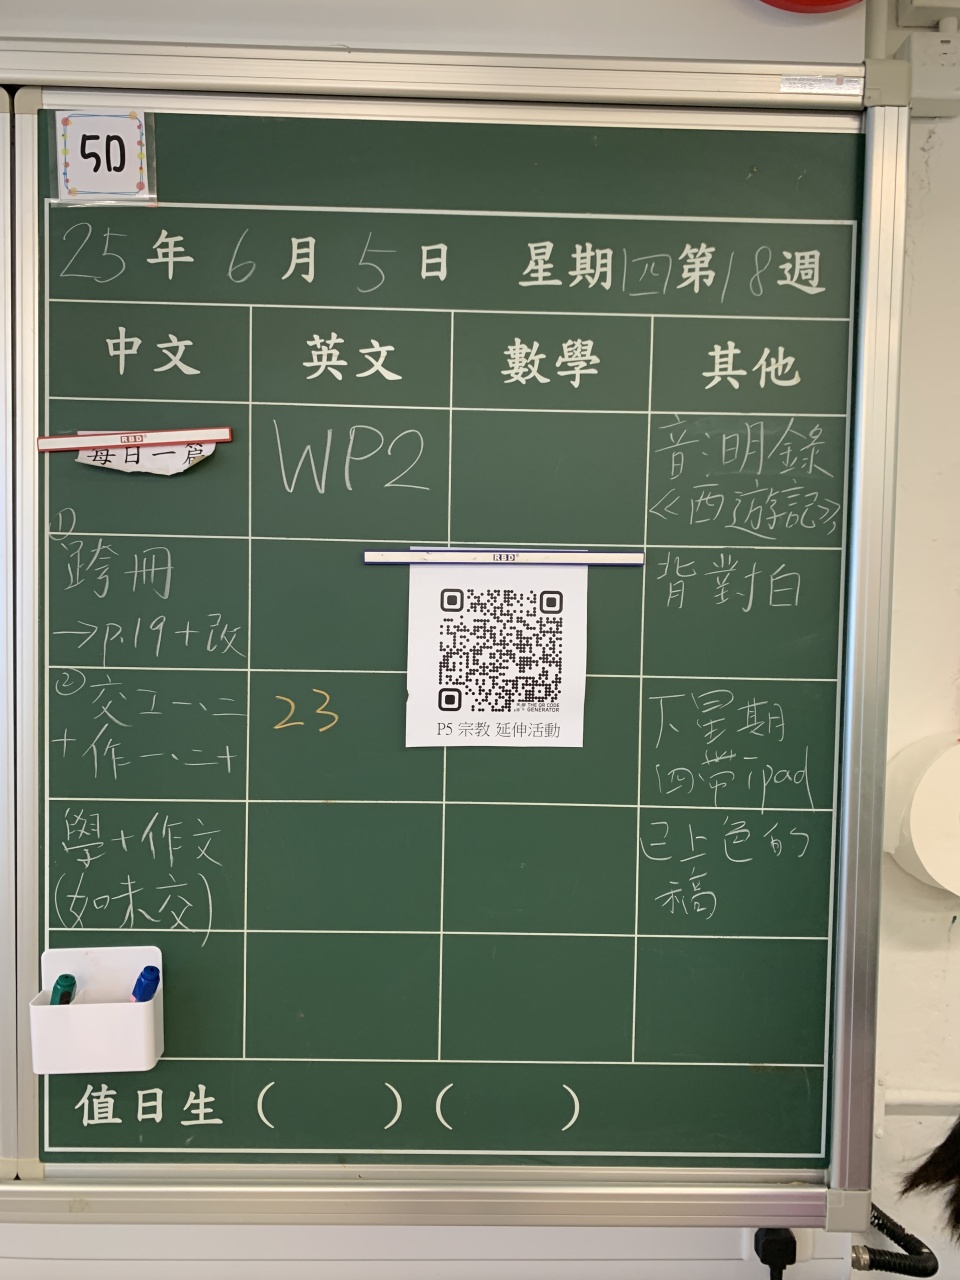 5D
25年6月5日 星期四第18週
中文 英文 數學 其他
RBD
每日一篇
WP2
音:明錄
《西遊記》
①
跨冊
→p.19+改
RBD
THE QR CODE
GENERATOR
P5 宗教 延伸活動
背對白
②交工一、二
+作一、二+
23
下星期
四帶ipad
學+作文
(如未交)
已上色的
稿
值日生( )( )